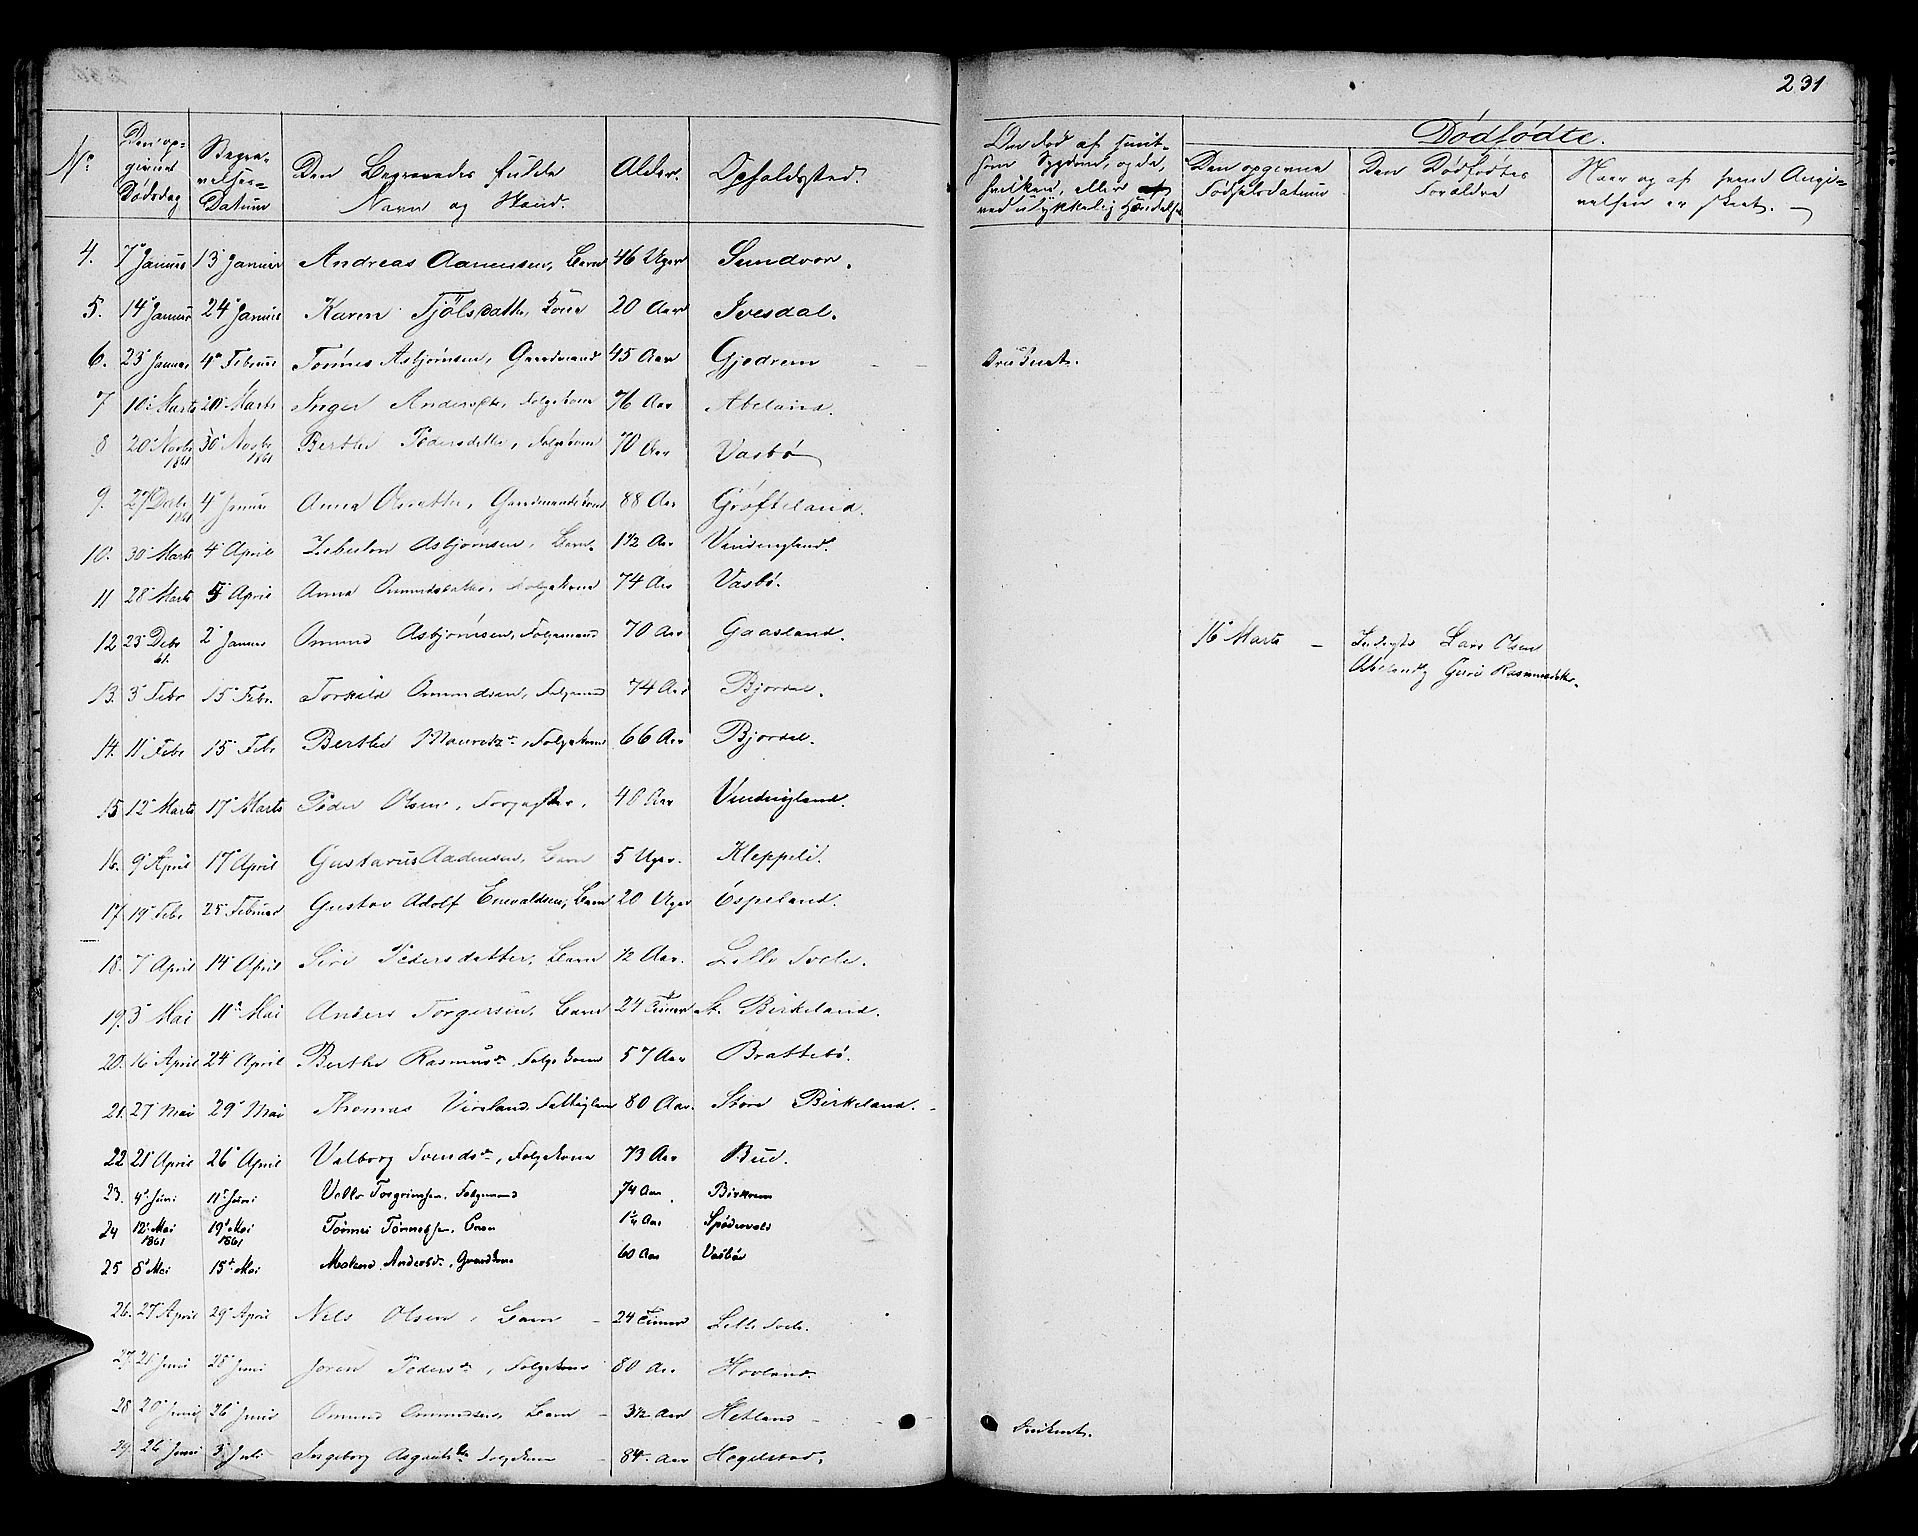 231
No
Den op-
givne
Dødsdag
Begra-
velses-
Datum
Den Begravedes fulde
Navn og Stand.
Alder.
Opholdssted.
Om død af smit-
som Sygdom, og da,
hvilken, eller
ved ulykkelig Hændelse
Dødfødte.
Den opgivne
Fødselsdatum
Den Dødfødtes
Forældre
Naar og af hvem Angi-
velsen er skeet.
4. 7 Januar 13 Januar Andreas Aanensen, Barn 46 Uger Sundvor.
5. 14 Januar 24 Januar Karen Tjölsdatter, Kone 20 Aar Ivesdal.
6. 23 Januar 4 Februar Tønnes Asbjørnsen, Gaardmand 45 Aar Gjedrem
7 10 Marts 20 Marts Inger Andersdtr, Folgekone 76 Aar Abeland.
8 20 Novbr 1861 30 Novbr 1861 Berthe Pedersdatter, Folgekone 70 Aar Vasbø
9. 27 Decbr 1861 4 Januar Anna Olsdatter, Gaardmandskone 88 Aar Grøfteland.
10. 30 Marts 4 April Zebulon Asbjørnsen, Barn. 1 1/2 Aar Vindingland.
11 28 Marts 5 April Anna Omundsdatter, Folgekone 74 Aar Vasbø.
12 23 Debr 61. 2 Januar Omund Asbjørnsen, Folgemand 70 Aar Gaasland. 16 Marts - Lars Olsen
Abeland og Guri Rasmusdatter.
13. 3 Febr 15 Febr. Torkild Omundsen, Folgemand 74 Aar Bjordal.
14. 11 Febr 15 Febr Berthe Mauritzdr, Folgekone 66 Aar Bjordal.
15 12 Marts 17 Marts Peder Olsen, 40 Aar Vindingland.
16. 9 April 17 April Gustavus Aadensen, Barn 5 Uger. Kleppeli.
17. 19 Febr 25 Februar Gustav Adolf Enevaldsen, Barn 20 Uger Espeland.
18. 7 April 14 April Siri Pedersdatter, Barn 12 Aar. Lille Svele.
19. 3 Mai 11 Mai Anders Torgersen, Barn 24 Timer St. Birkeland.
20. 16 April 24 April Berthe Rasmusdr, Folgekone 57 Aar Brattebø.
21. 27 Mai 29 Mai Thomas Vireland, Fattiglem 80 Aar. Store Birkeland.
22 21 April 26 April Valborg Svendsdr, Folgekone 73 Aar Bue.
23. 4 Juni 11 Juni Torgrimsen, Folgemand 74 Aar Birkrem
24 12 Mai 1861 19 Mai 1861 Tønnes Tønnessen, 1 1/4 Aar Spødervold
25 8 Mai 15 Mai Malene Andersdr, Gaardkone 60 Aar Vasbø
26. 27 April 29 April Nels Olsen, Barn - 24 Timer Lille Svele.
27. 21 Juni 28 Juni Joren Pedersdr, Folgekone 80 Aar Hovland.
28 20 Juni 26 Juni Omund Omundsen, Barn - 3 1/2 Aar Hetland -
29. 26 Juni 3 Juli Ingeborg Asgautsdr Folgekone - 84 Aar Hegelstad.